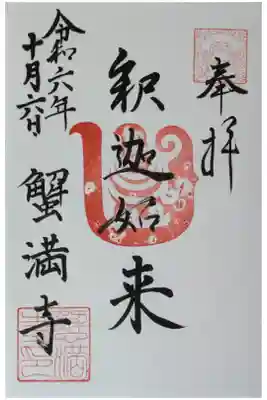 奉拝
釈迦如来
令和六年
十月六日
蟹満寺